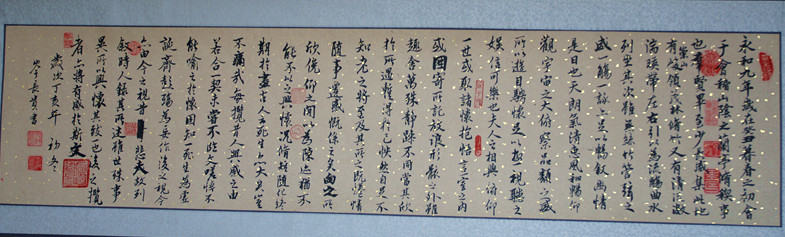 永和九年歲在癸丑暮春之初會
于會稽山陰之蘭亭脩稧事
也羣賢畢至少長咸集此地
有崇山峻領茂林脩竹又有清流激
湍暎帶左右引以為流觴曲水
列坐其次雖無絲竹管弦之
盛一觴一詠亦足以暢敘幽情
是日也天朗氣清惠風和暢仰
觀宇宙之大俯察品類之盛
所以遊目騁懷足以極視聽之
娛信可樂也夫人之相與俯仰
一世或取諸懷抱悟言一室之內
或因寄所託放浪形骸之外雖
趣舍萬殊靜躁不同當其欣
於所遇暫得於己快然自足不
知老之將至及其所之既惓情
隨事遷感慨係之矣向之所
欣俛仰之間以為陳迹猶不
能不以之興懷況脩短隨化終
期於盡古人云死生亦大矣豈
不痛哉每攬昔人興感之由
若合一契未嘗不臨文嗟悼不
能喻之於懷固知一死生為虛
誕齊彭殤為妄作後之視今
亦由今之視昔悲夫故列
敘時人錄其所述雖世殊事
異所以興懷其致一也後之攬
者亦將有感於斯文
歲次丁亥年初冬
書